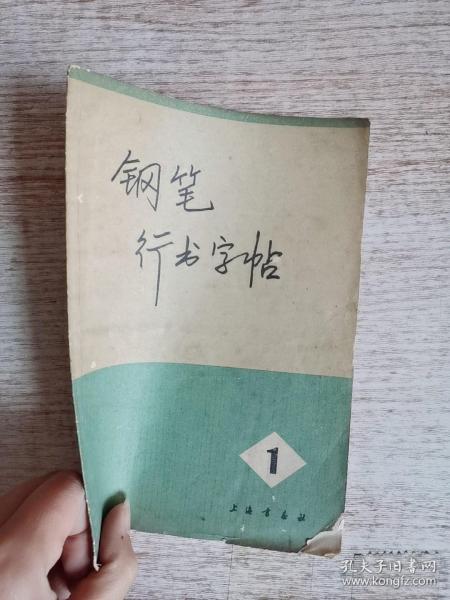 钢笔
行书字帖
1
上海书画社
孔夫子旧书网
www.kongfz.com